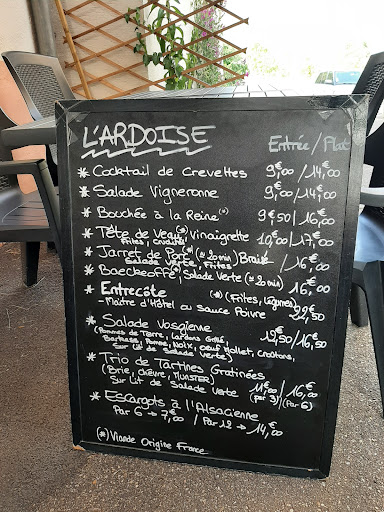 L'ARDOISE Entrée / Plat
* Cocktail de Crevettes 9,€00 / 14,€00
* Salade Vigneronne 9,€00 / 14,€00
* Bouchée à la Reine (*) 9€50 / 16,€00
* Tête de Veau (*), Vinaigrette 10,€00 / 17,€00
Frites, Crudités
* Jarret de Porc (* ≈ 20min) Braisé / 16,€00
Salade Verte, Frites
* Baeckeoffe (*), Salade Verte (≈ 20 min) 16,€00
* Entrecôte (*) (Frites, Légumes)
- Maître d'Hôtel ou Sauce Poivre 22,€50
* Salade Vosgienne 12,€50 / 16,€50
(Pommes de Terre, Lardons Grillé,
Pomme, Noix, Œuf Mollet, Croûtons,
Sur Lit de Salade Verte)
* Trio de Tartines Gratinées
(Brie, Chèvre, MUNSTER) 11,€00 / 16,€00
Sur Lit de Salade Verte (Par 3) / (Par 6)
* Escargots à l'Alsacienne
Par 6 → 7,€00 / Par 12 → 14,€00
(*) Viande Origine France